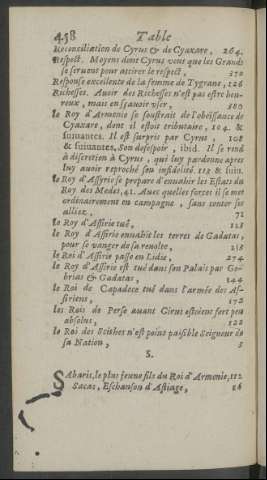 458 Table
Reconciliation de Cyrus & de Cyaxare, 264.
Respect. Moyens dont Cyrus veut que les Grands
se seruent pour attirer le respect, 270
Response excellente de la femme de Tygrane, 126
Richesses. Auoir des Richesses n'est pas estre heu-
reux, mais en sçauoir vser,
le Roy d'Armenie se soustrait de l'obeïssance de
Cyaxare, dont il estoit tributaire, 104. &
suiuantes. Il est surpris par Cyrus 108
& suiuantes, Son desespoir, ibid. Il se rend
à discretion à Cyrus, qui luy pardonne apres
luy auoir reproché son infidelité. 113 & suiu.
le Roy d'Assyrie se prepare d'enuahir les Estats du
Roy des Medes, 41. Auec quelles forces il se met
ordinairement en campagne, sans conter ses
alliez, 72
le Roy d'Assirie tué, 128
le Roy d'Assirie enuahit les terres de Gadatas,
pour se vanger de sa reuolte, 218
le Roi d'Assirie passe en Lidie, 274
le Roy d'Assirie est tué dans son Palais par Go-
brias & Gadatas, 344
le Roi de Capadoce tué dans l'armée des As-
siriens, 173
les Rois de Perse auant Cirus estoient fort peu
absolus, 122
le Roi des Scithes n'est point paisible Seigneur de
sa Nation, 5
S.
Sabaris, le plus jeune fils du Roi d'Armenie, 112
Sacas, Eschanson d'Astiage, 16